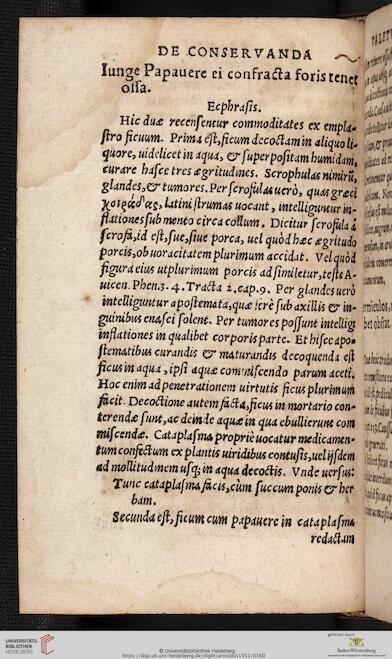 DE CONSERVANDA
Iunge Papauere ei confracta foris tenet
ossa.
Ecphrasis.
Hic duæ recensentur commoditates ex empla-
stro ficuum. Prima est, ficum decoctam in aliquo li-
quore, uidelicet in aqua, & superpositam humidam,
curare hasce tres ægritudines. Scrophulas nimirũ,
glandes, & tumores. Per scrofulas uerò, quas græci
χοιράδας, latini strumas uocant, intelliguntur in-
flationes sub mento circa collum. Dicitur scrofula à
scrofa, id est, sue, siue porca, uel quòd hæc ægritudo
porcis, ob uoracitatem plurimum accidat. Vel quòd
figura eius utplurimum porcis adsimiletur, teste A-
uicen. Phen. 3. 4. Tracta 2. cap. 9. Per glandes uerò
intelliguntur apostemata, quæ ferè sub axillis & in-
guinibus enasci solent. Per tumores possunt intelligi
inflationes in qualibet corporis parte. Et hisce apo-
stematibus curandis & maturandis decoquenda est
ficus in aqua, ipsi aquæ commiscendo parum aceti.
Hoc enim ad penetrationem uirtutis ficus plurimum
facit. Decoctione autem facta, ficus in mortario con-
terendæ sunt, ac deinde aquæ in qua ebullierunt com
miscendæ. Cataplasma propriè uocatur medicamen-
tum confectum ex plantis uiridibus contusis, uel ijsdem
ad mollitudinem usq; in aqua decoctis. Vnde uersus:
Tunc cataplasma facis, cùm succum ponis & her
bam.
Secunda est, ficum cum papauere in cataplasma
redactam
UNIVERSITÄTS-
BIBLIOTHEK
HEIDELBERG
© Universitätsbibliothek Heidelberg
https://digi.ub.uni-heidelberg.de/diglit/arnoldus1551/0160
gefördert durch
Baden-Württemberg